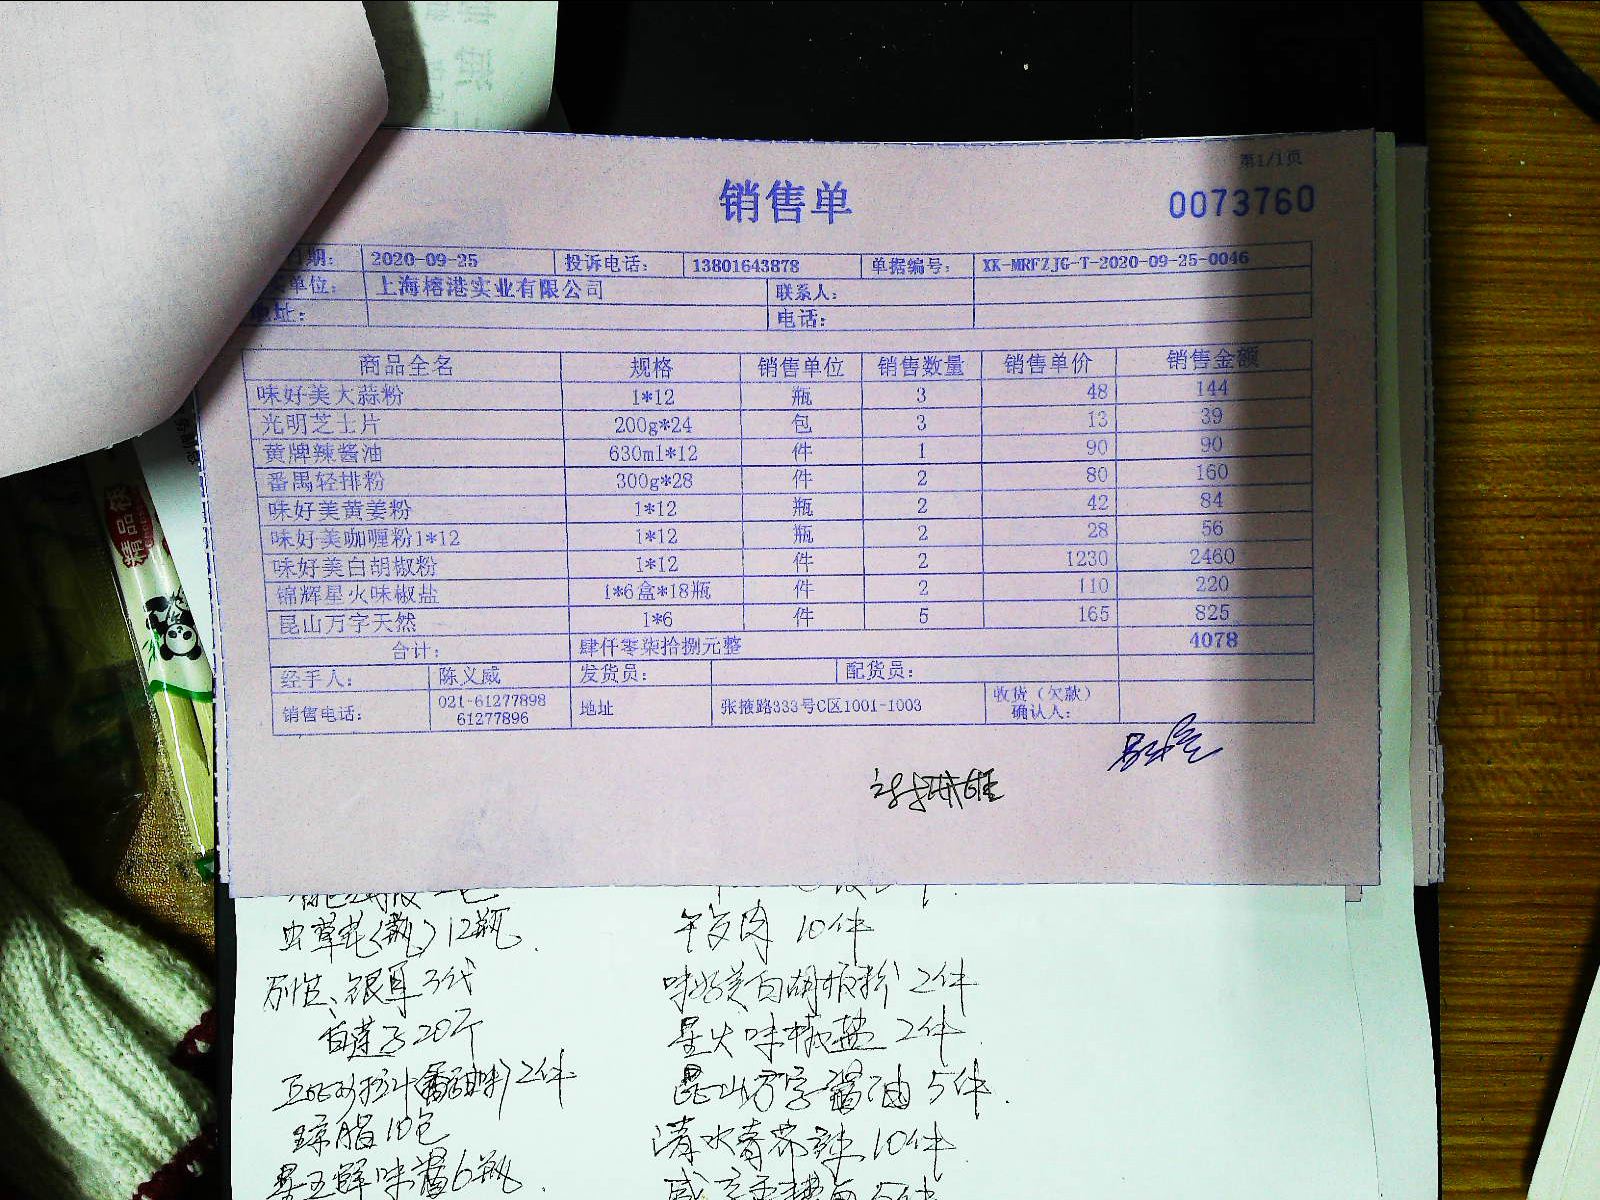 第1/1页
销售单
0073760
日期： 2020-09-25 投诉电话： 13801643878 单据编号： XK-MRFZJG-T-2020-09-25-0046
单位： 上海榕港实业有限公司 联系人：
地址： 电话：
商品全名 规格 销售单位 销售数量 销售单价 销售金额
味好美大蒜粉 1*12 瓶 3 48 144
光明芝士片 200g*24 包 3 13 39
黄牌辣酱油 630ml*12 件 1 90 90
番禺轻排粉 300g*28 件 2 80 160
味好美黄姜粉 1*12 瓶 2 42 84
味好美咖喱粉1*12 1*12 瓶 2 28 56
味好美白胡椒粉 1*12 件 2 1230 2460
锦辉星火味椒盐 1*6盒*18瓶 件 2 110 220
昆山万字天然 1*6 件 5 165 825
合计： 肆仟零柒拾捌元整 4078
经手人： 陈义威 发货员： 配货员：
销售电话： 021-61277898 61277896 地址 张掖路333号C区1001-1003 收货（欠款）确认人：
精品筷
虫草花(瓶)12瓶. 午餐肉 10件
银耳3代 味好美白胡椒粉 2件
白莲子20斤 星火味椒盐 2件.
2件 昆山万字酱油 5件.
琼脂10包 清水青荞辣 10件
鲜味酱6瓶. 5件